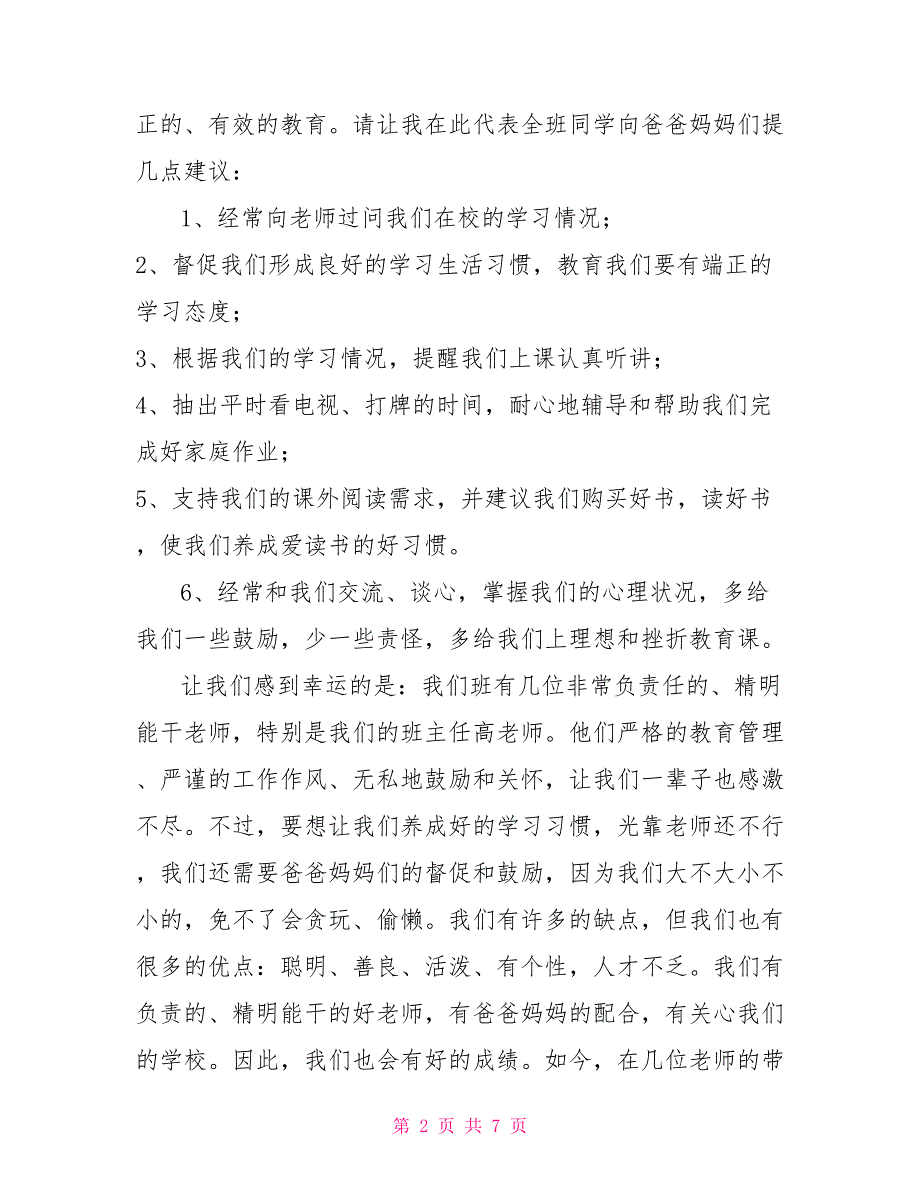 正的、有效的教育。请让我在此代表全班同学向爸爸妈妈们提
几点建议：
1、经常向老师过问我们在校的学习情况；
2、督促我们形成良好的学习生活习惯，教育我们要有端正的
学习态度；
3、根据我们的学习情况，提醒我们上课认真听讲；
4、抽出平时看电视、打牌的时间，耐心地辅导和帮助我们完
成好家庭作业；
5、支持我们的课外阅读需求，并建议我们购买好书，读好书
，使我们养成爱读书的好习惯。
6、经常和我们交流、谈心，掌握我们的心理状况，多给
我们一些鼓励，少一些责怪，多给我们上理想和挫折教育课。
让我们感到幸运的是：我们班有几位非常负责任的、精明
能干老师，特别是我们的班主任高老师。他们严格的教育管理
、严谨的工作作风、无私地鼓励和关怀，让我们一辈子也感激
不尽。不过，要想让我们养成好的学习习惯，光靠老师还不行
，我们还需要爸爸妈妈们的督促和鼓励，因为我们大不大小不
小的，免不了会贪玩、偷懒。我们有许多的缺点，但我们也有
很多的优点：聪明、善良、活泼、有个性，人才不乏。我们有
负责的、精明能干的好老师，有爸爸妈妈的配合，有关心我们
的学校。因此，我们也会有好的成绩。如今，在几位老师的带
第 2 页 共 7 页